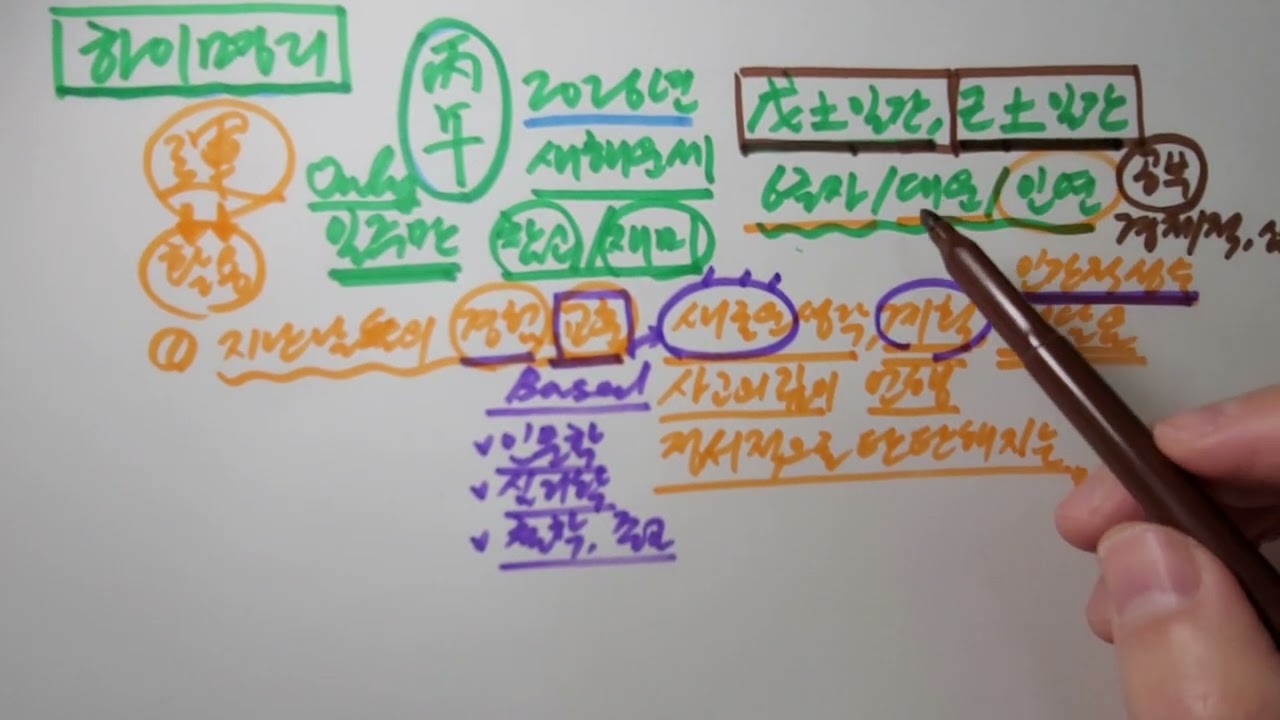 하이명리
丙午
2026년
새해운세
戊土일간, 己土일간
運
활용
Only
일주만
참고/재미
6글자/대운/인연
공부
경제적,
인간적 성숙
① 지난날의 경험 교훈 → 새로운 생각, 계획
Based
사고의 깊이
정서적으로 단단해지는
✓ 인문학
✓ 심리학
✓ 철학, 종교